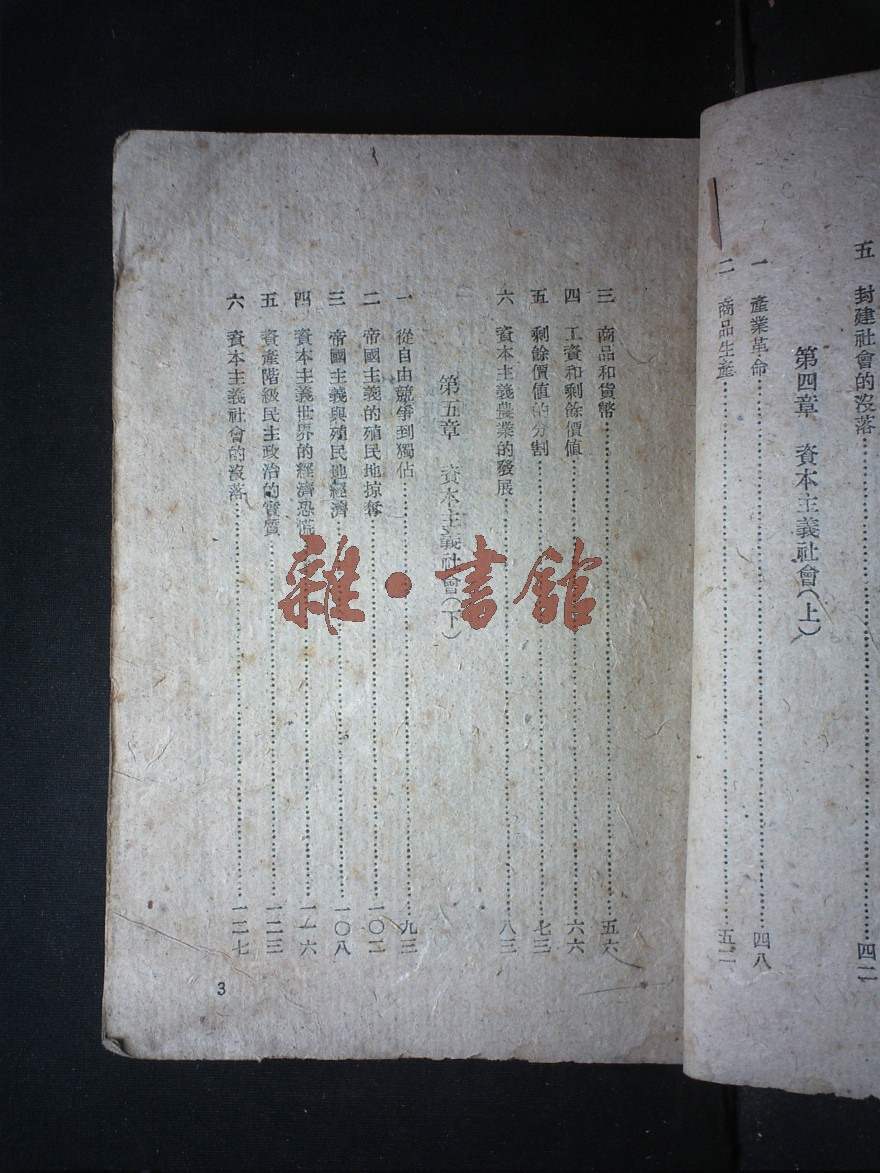 五 封建社會的沒落……四二
第四章 資本主義社會(上)
一 產業革命……四八
二 商品生產……五二
三 商品和貨幣……五六
四 工資和剩餘價值……六六
五 剩餘價值的分割……七三
六 資本主義農業的發展……八三
第五章 資本主義社會(下)
一 從自由競爭到獨佔……九三
二 帝國主義的殖民地掠奪……一〇二
三 帝國主義與殖民地經濟……一〇八
四 資本主義世界的經濟恐慌……一一六
五 資產階級民主政治的實質……一二三
六 資本主義社會的沒落……一二七
3
雜·書館